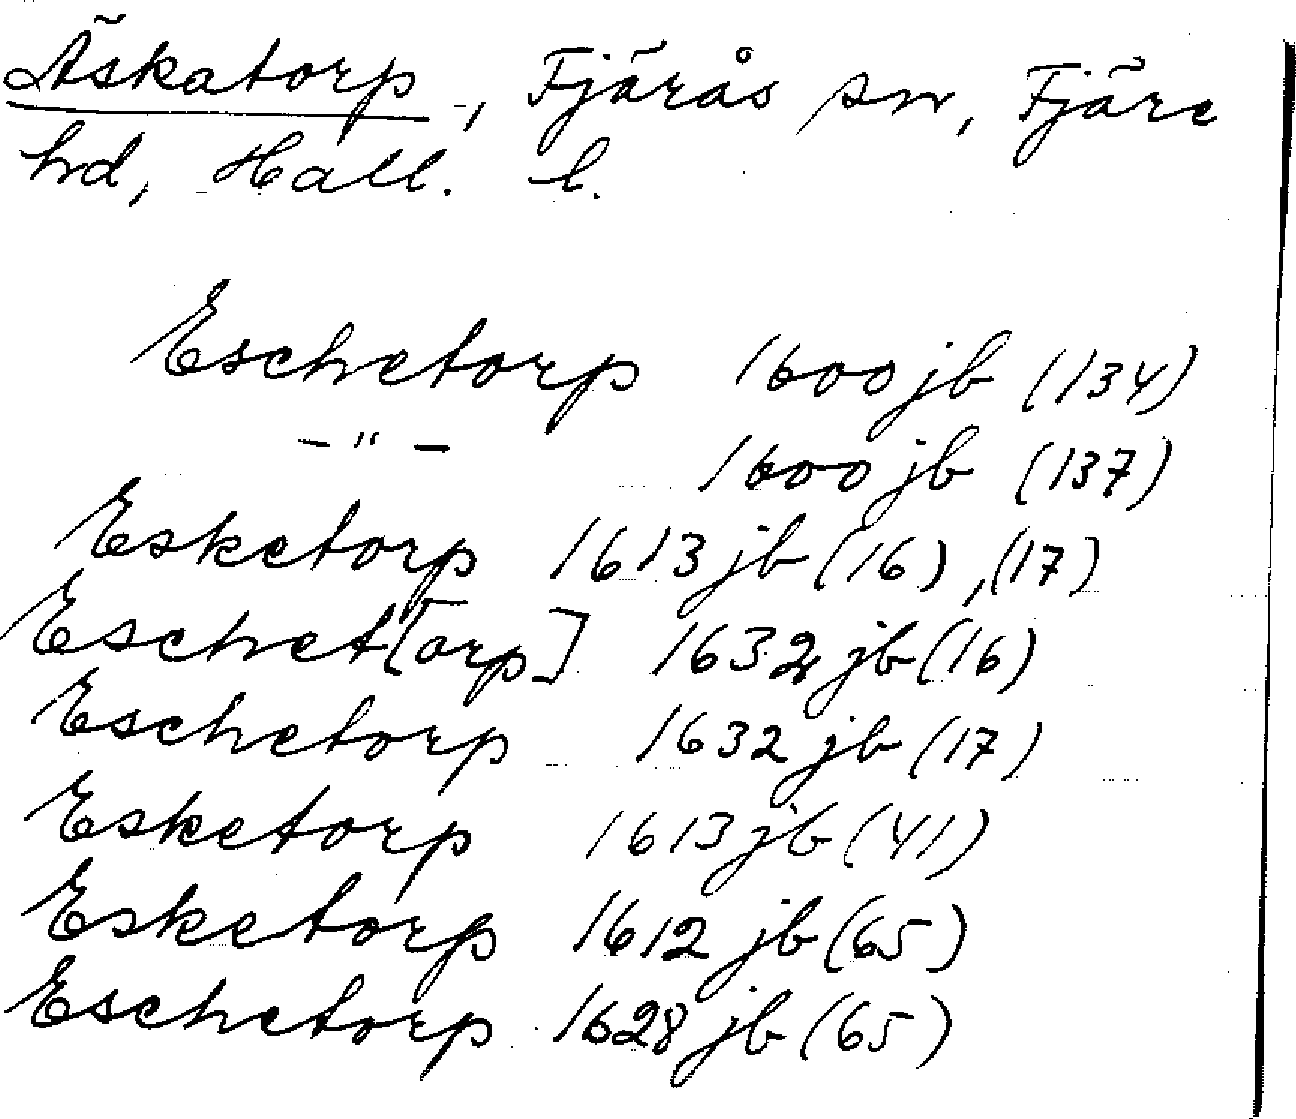 Äskatorp, Fjärås sn, Fjäre
hd, Hall. l.
Eschetorp 1600 jb (134)
-"- 1600 jb (137)
Esketorp 1613 jb (16), (17)
Eschet[orp] 1632 jb (16)
Eschetorp 1632 jb (17)
Esketorp 1613 jb (41)
Esketorp 1612 jb (65)
Eschetorp 1628 jb (65)